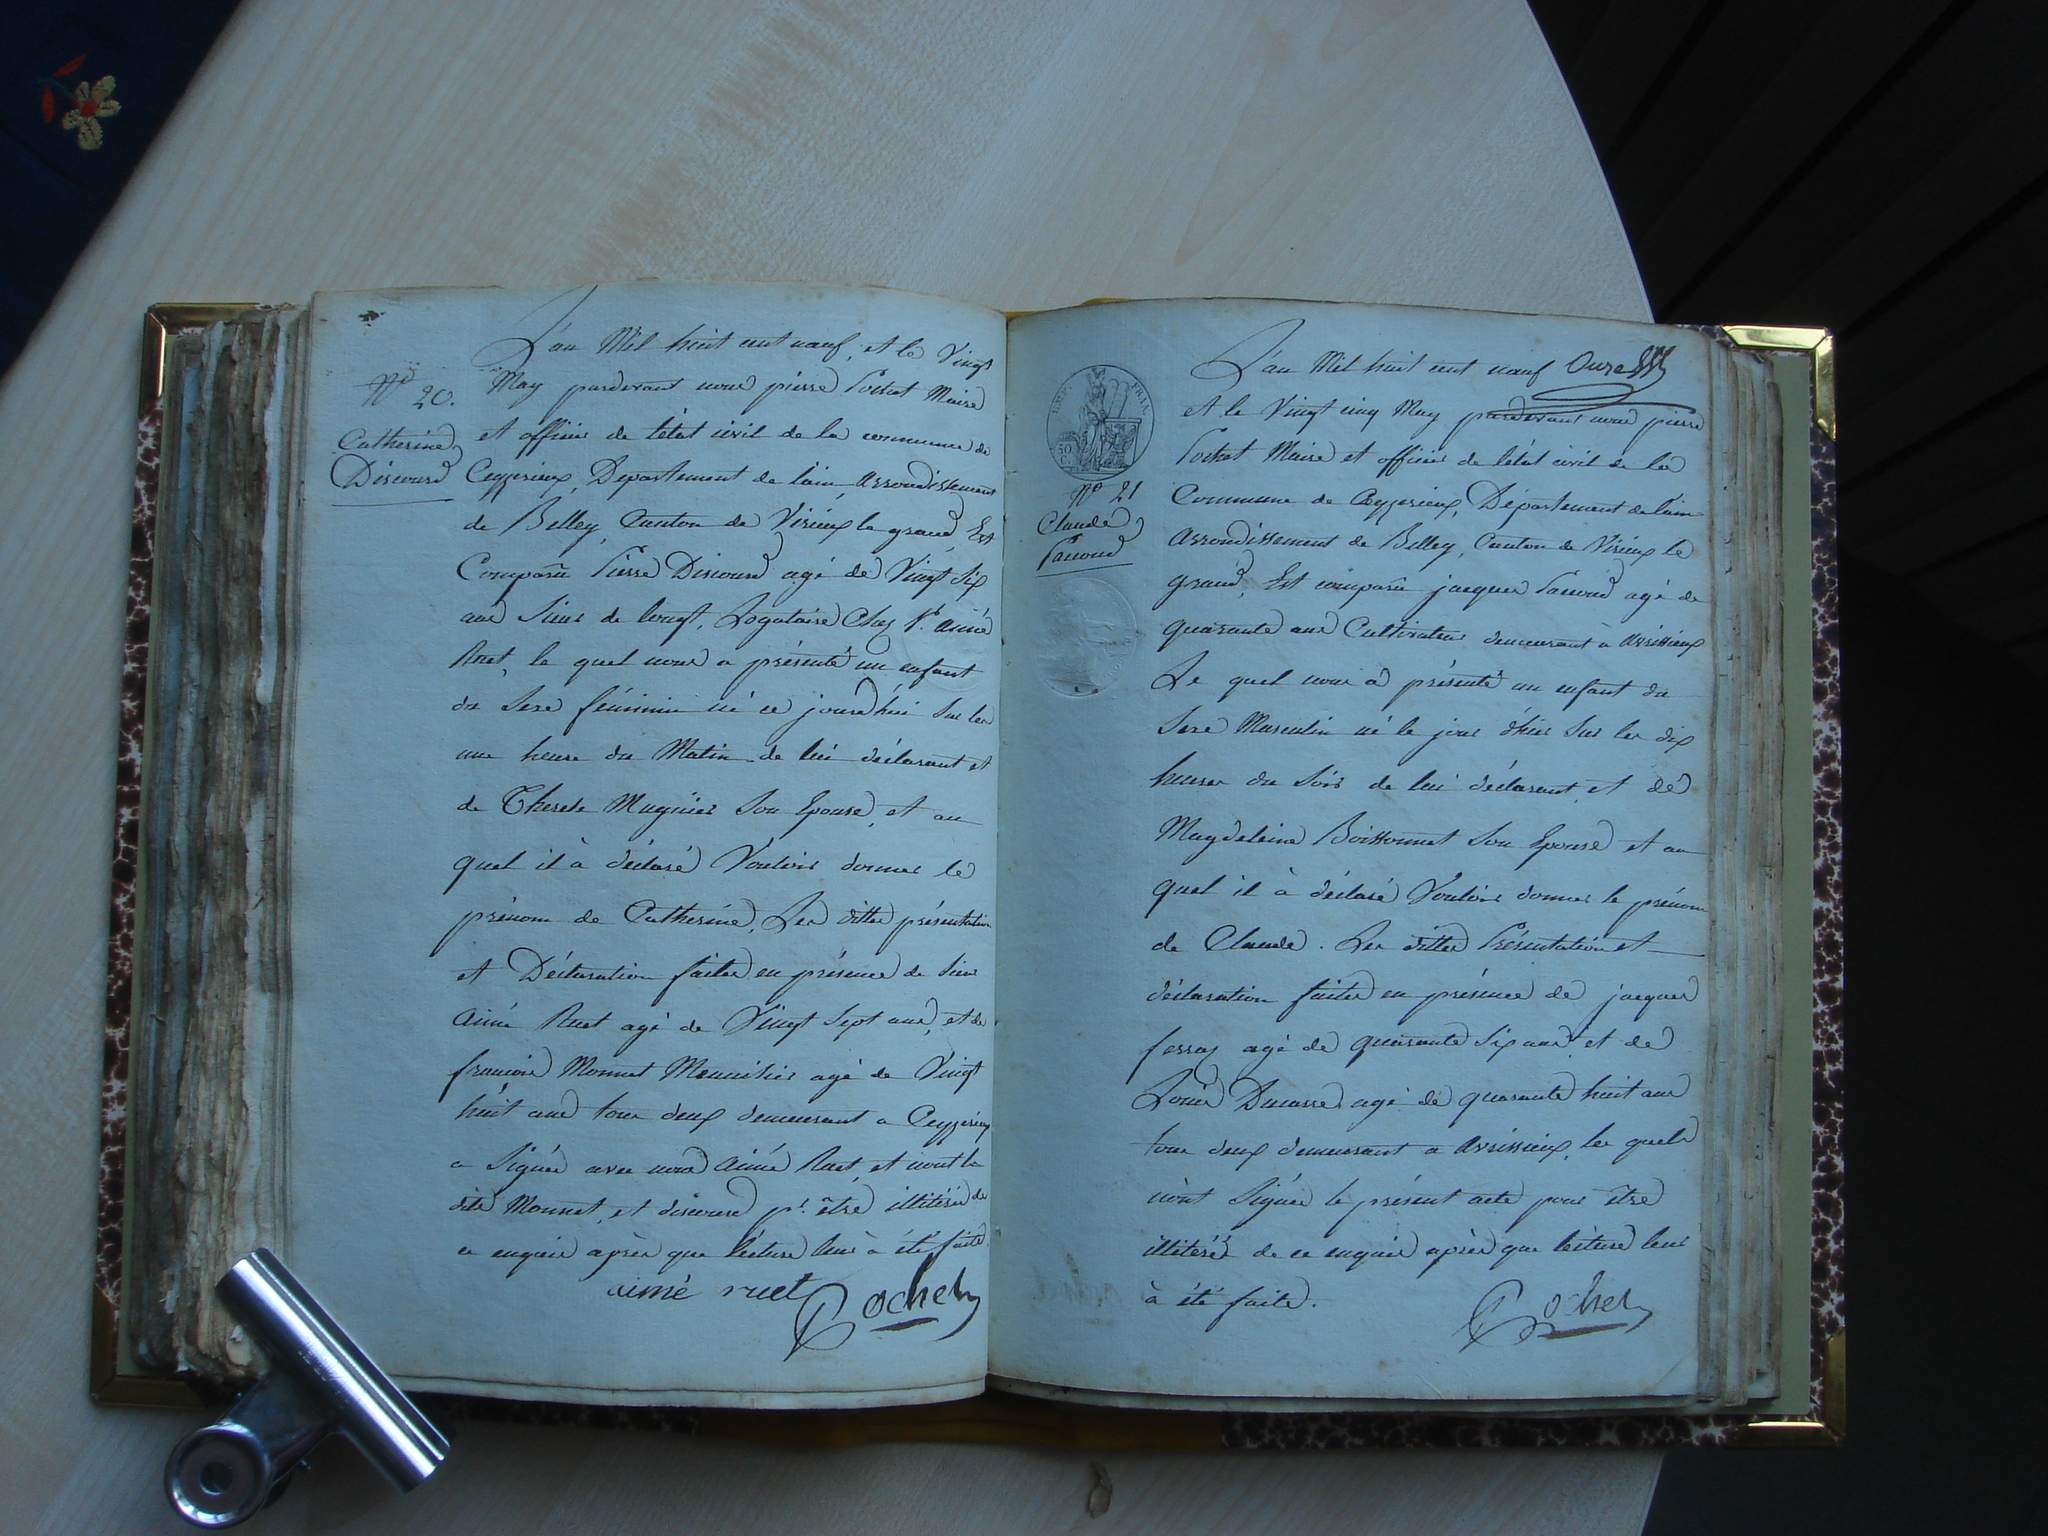 N° 20.
Catherine
Discours
L'an Mil huit cent neuf, et le Vingt
May pardevant nous pierre Pochet Maire
et officier de l'état civil de la commune de
Ceyzerieux, Departement de lain, Arrondissement
de Belley, Canton de Virieux le grand, Est
Comparu Pierre Discours agé de Vingt Six
ans Sieur de long, Logataire Chez Sr. Aimé
Ruet, le quel nous a présenté un enfant
du Sexe féminin né ce jourd'hui Sur les
une heure du Matin de lui déclarant et
de Therese Mugnier Son Epouse, et au
quel il à déclaré Vouloir donner le
prénom de Catherine, Les dittes présentation
et Déclaration faites en présence de Sieur
Aimé Ruet agé de Vingt Sept ans, et de
françois Monnet Menuisier agé de Vingt
huit ans tous deux demeurant a Ceyzerieux
a Signé avec nous Aimé Ruet, et non le
dit Monnet, et discours pr. être illitéré de
ce enquis après que lecture leur à été faite.
aimé ruet Pochet
EMP. FRAN.
50
C.
N° 21
Claude
Panoud
L'an Mil huit cent neuf
et le Vingt cinq May pardevant nous pierre
Pochet Maire et officier de l'état civil de la
Commune de Ceyzerieux, Département de l'ain
Arrondissement de Belley, Canton de Virieux le
grand, Est comparu jacques Panoud agé de
quarante ans Cultivateur demeurant à Avrissieux
Le quel nous à présenté un enfant du
Sexe Masculin né le jour d'hier Sur les dix
heures du Soir de lui déclarant, et de
Magdeleine Boissonnet Son Epouse et au
quel il à déclaré Vouloir donner le prénom
de Claude. Les dittes Présentation et
déclaration faites en présence de jacques
ferraz agé de quarante Six ans, et de
Louis Ducarre agé de quarante huit ans
tous deux demeurant a Avrissieux, les quels
n'ont Signés le présent acte pour être
illitéré de ce enquis après que lecture leur
à été faite.
Pochet